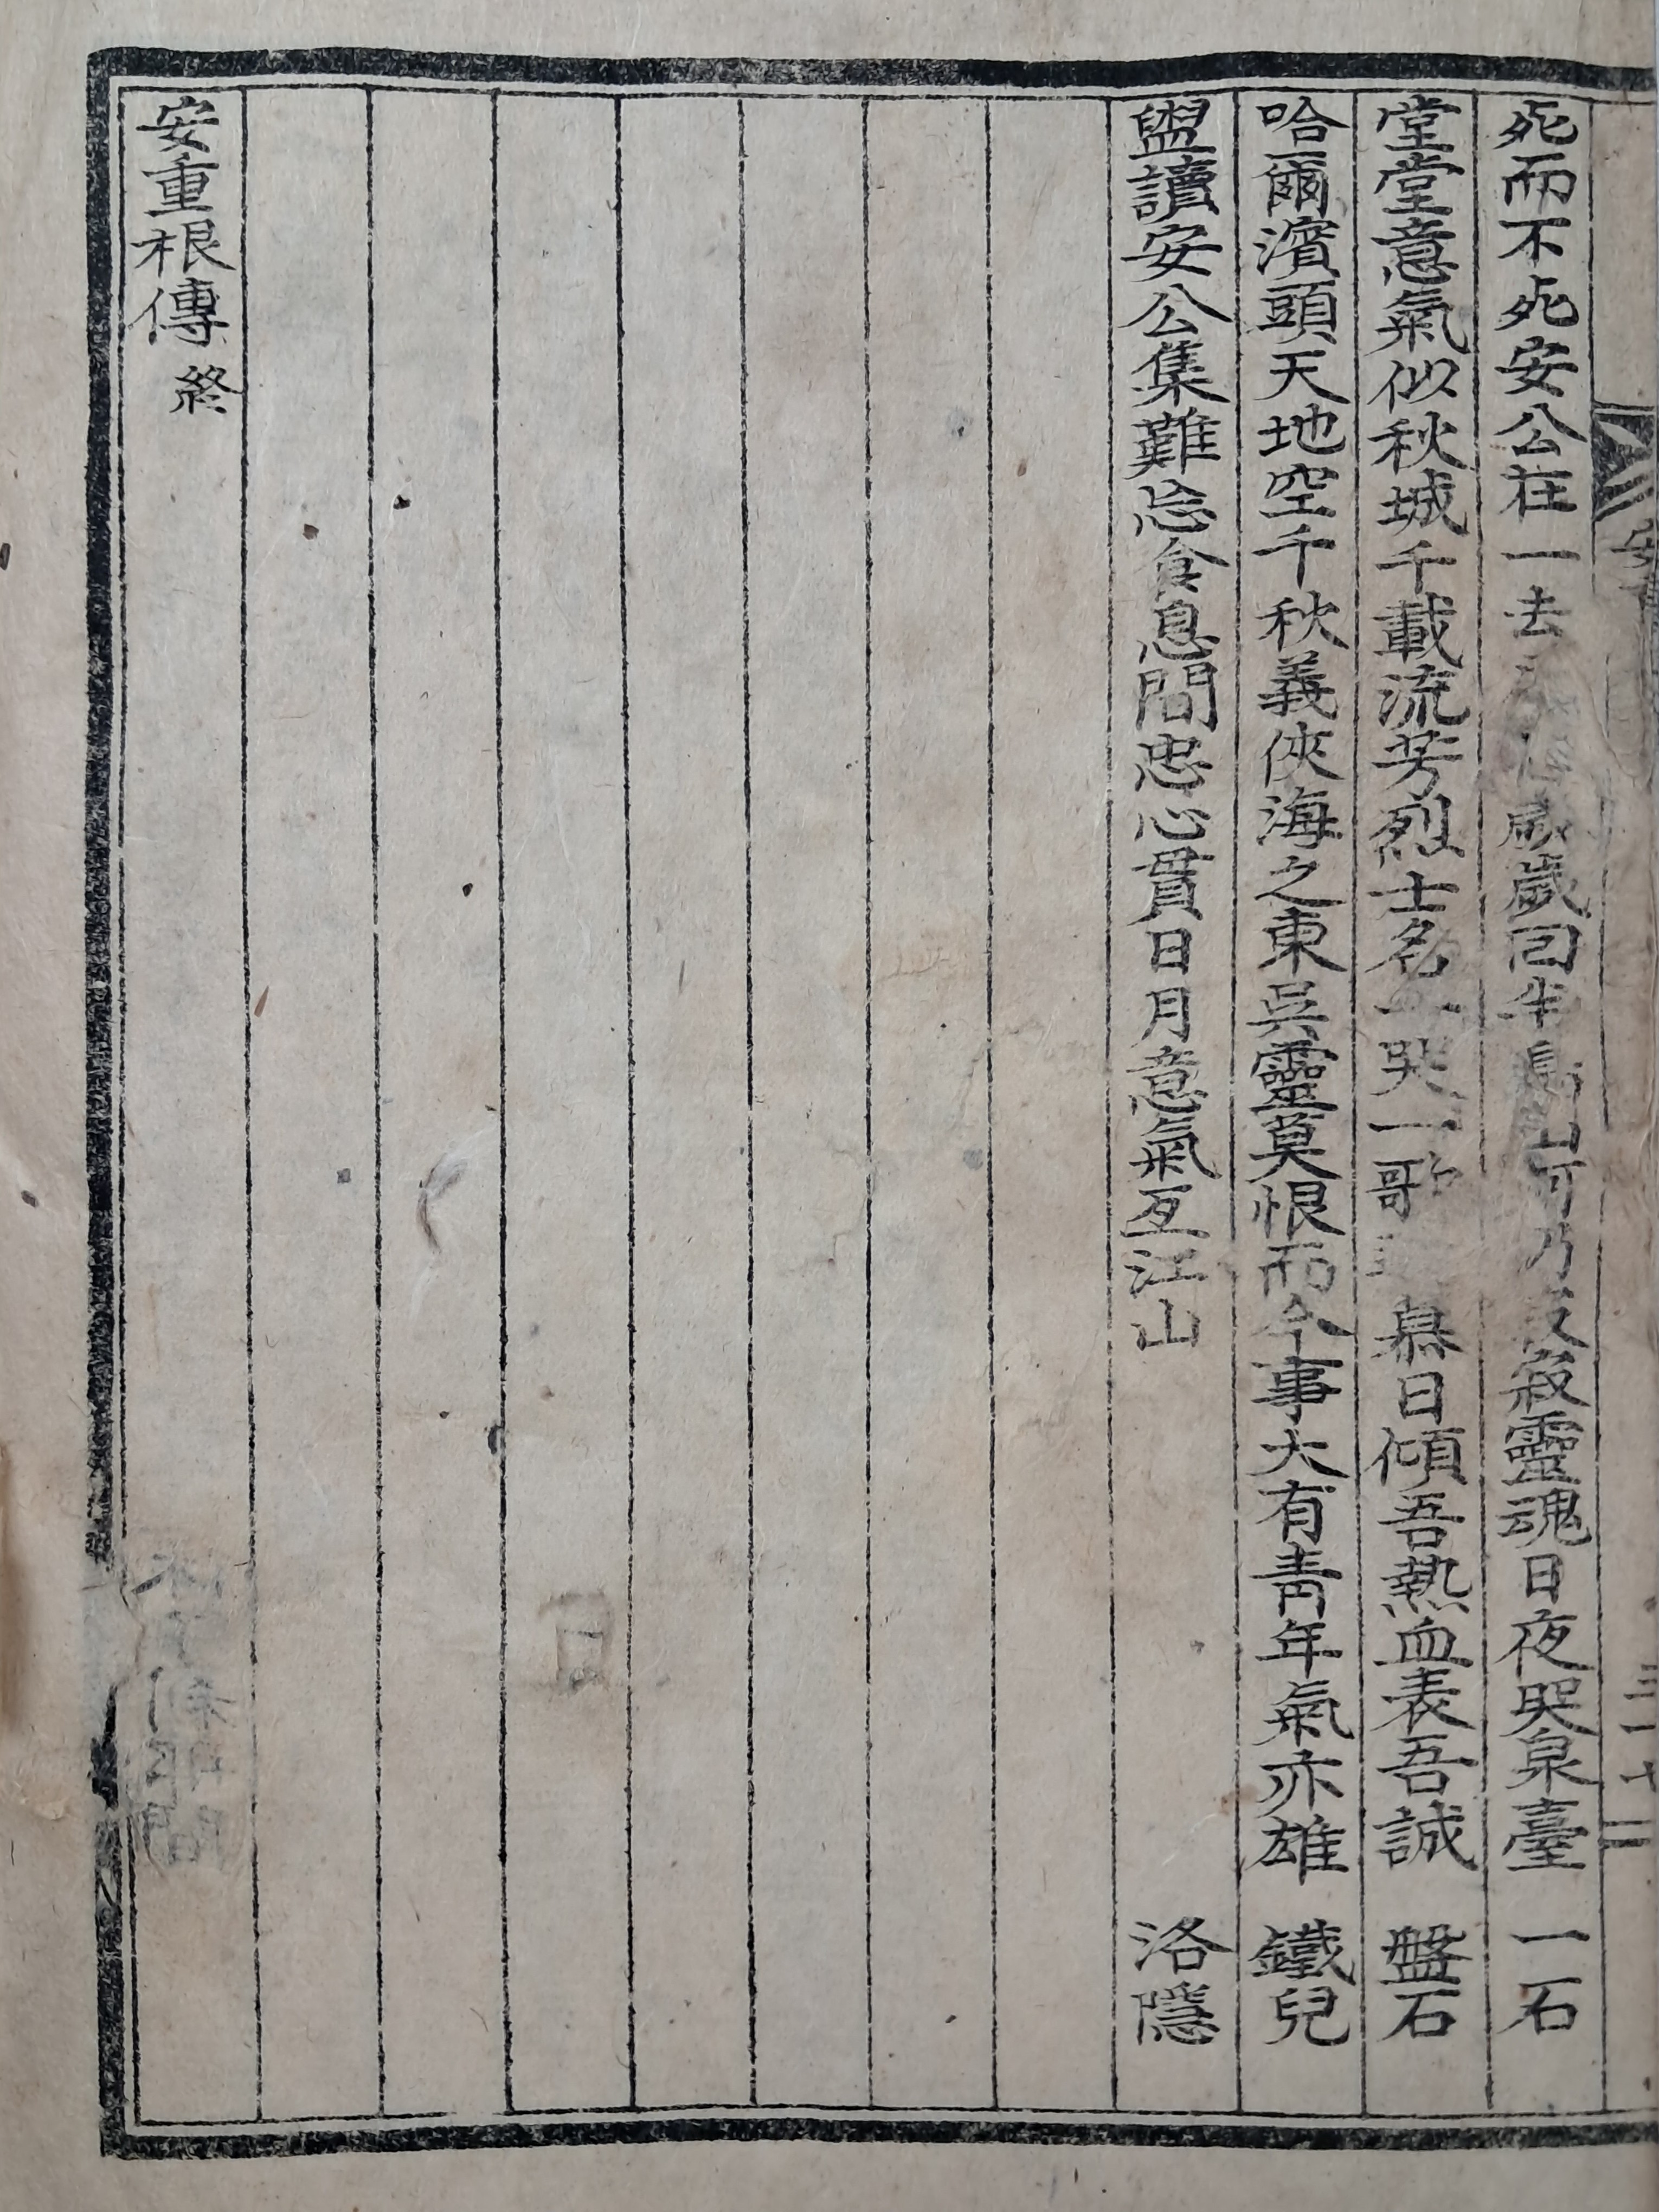 死而不死安公在一去歲歲回半島山河乃寂靈魂日夜哭泉臺 一石
堂堂意氣似秋城千載流芳烈士名一哭一歌慕日傾吾熱血表吾誠 盤石
哈爾濱頭天地空千秋義俠海之東吳靈莫恨而今事大有靑年氣亦雄 鐵兒
盥讀安公集難忘食息間忠心貫日月意氣亙江山 洛隱
安重根傳 終